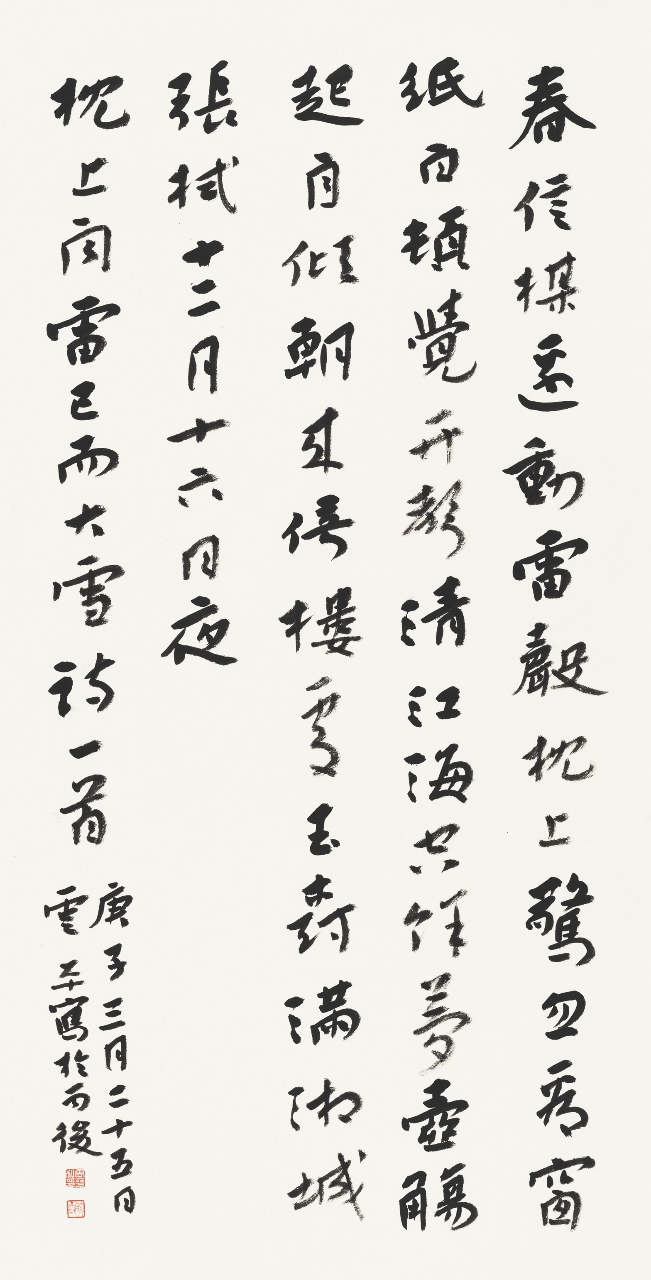 春信楳邊動雷聲枕上驚忽看窗
紙白頓覺清江海空餘夢壺觴
起自傾朝來倚樓處玉樹滿湘城
張栻十二月十六日夜
枕上聞雷已而大雪詩一首
庚子三月二十五日
雲寫於雨後